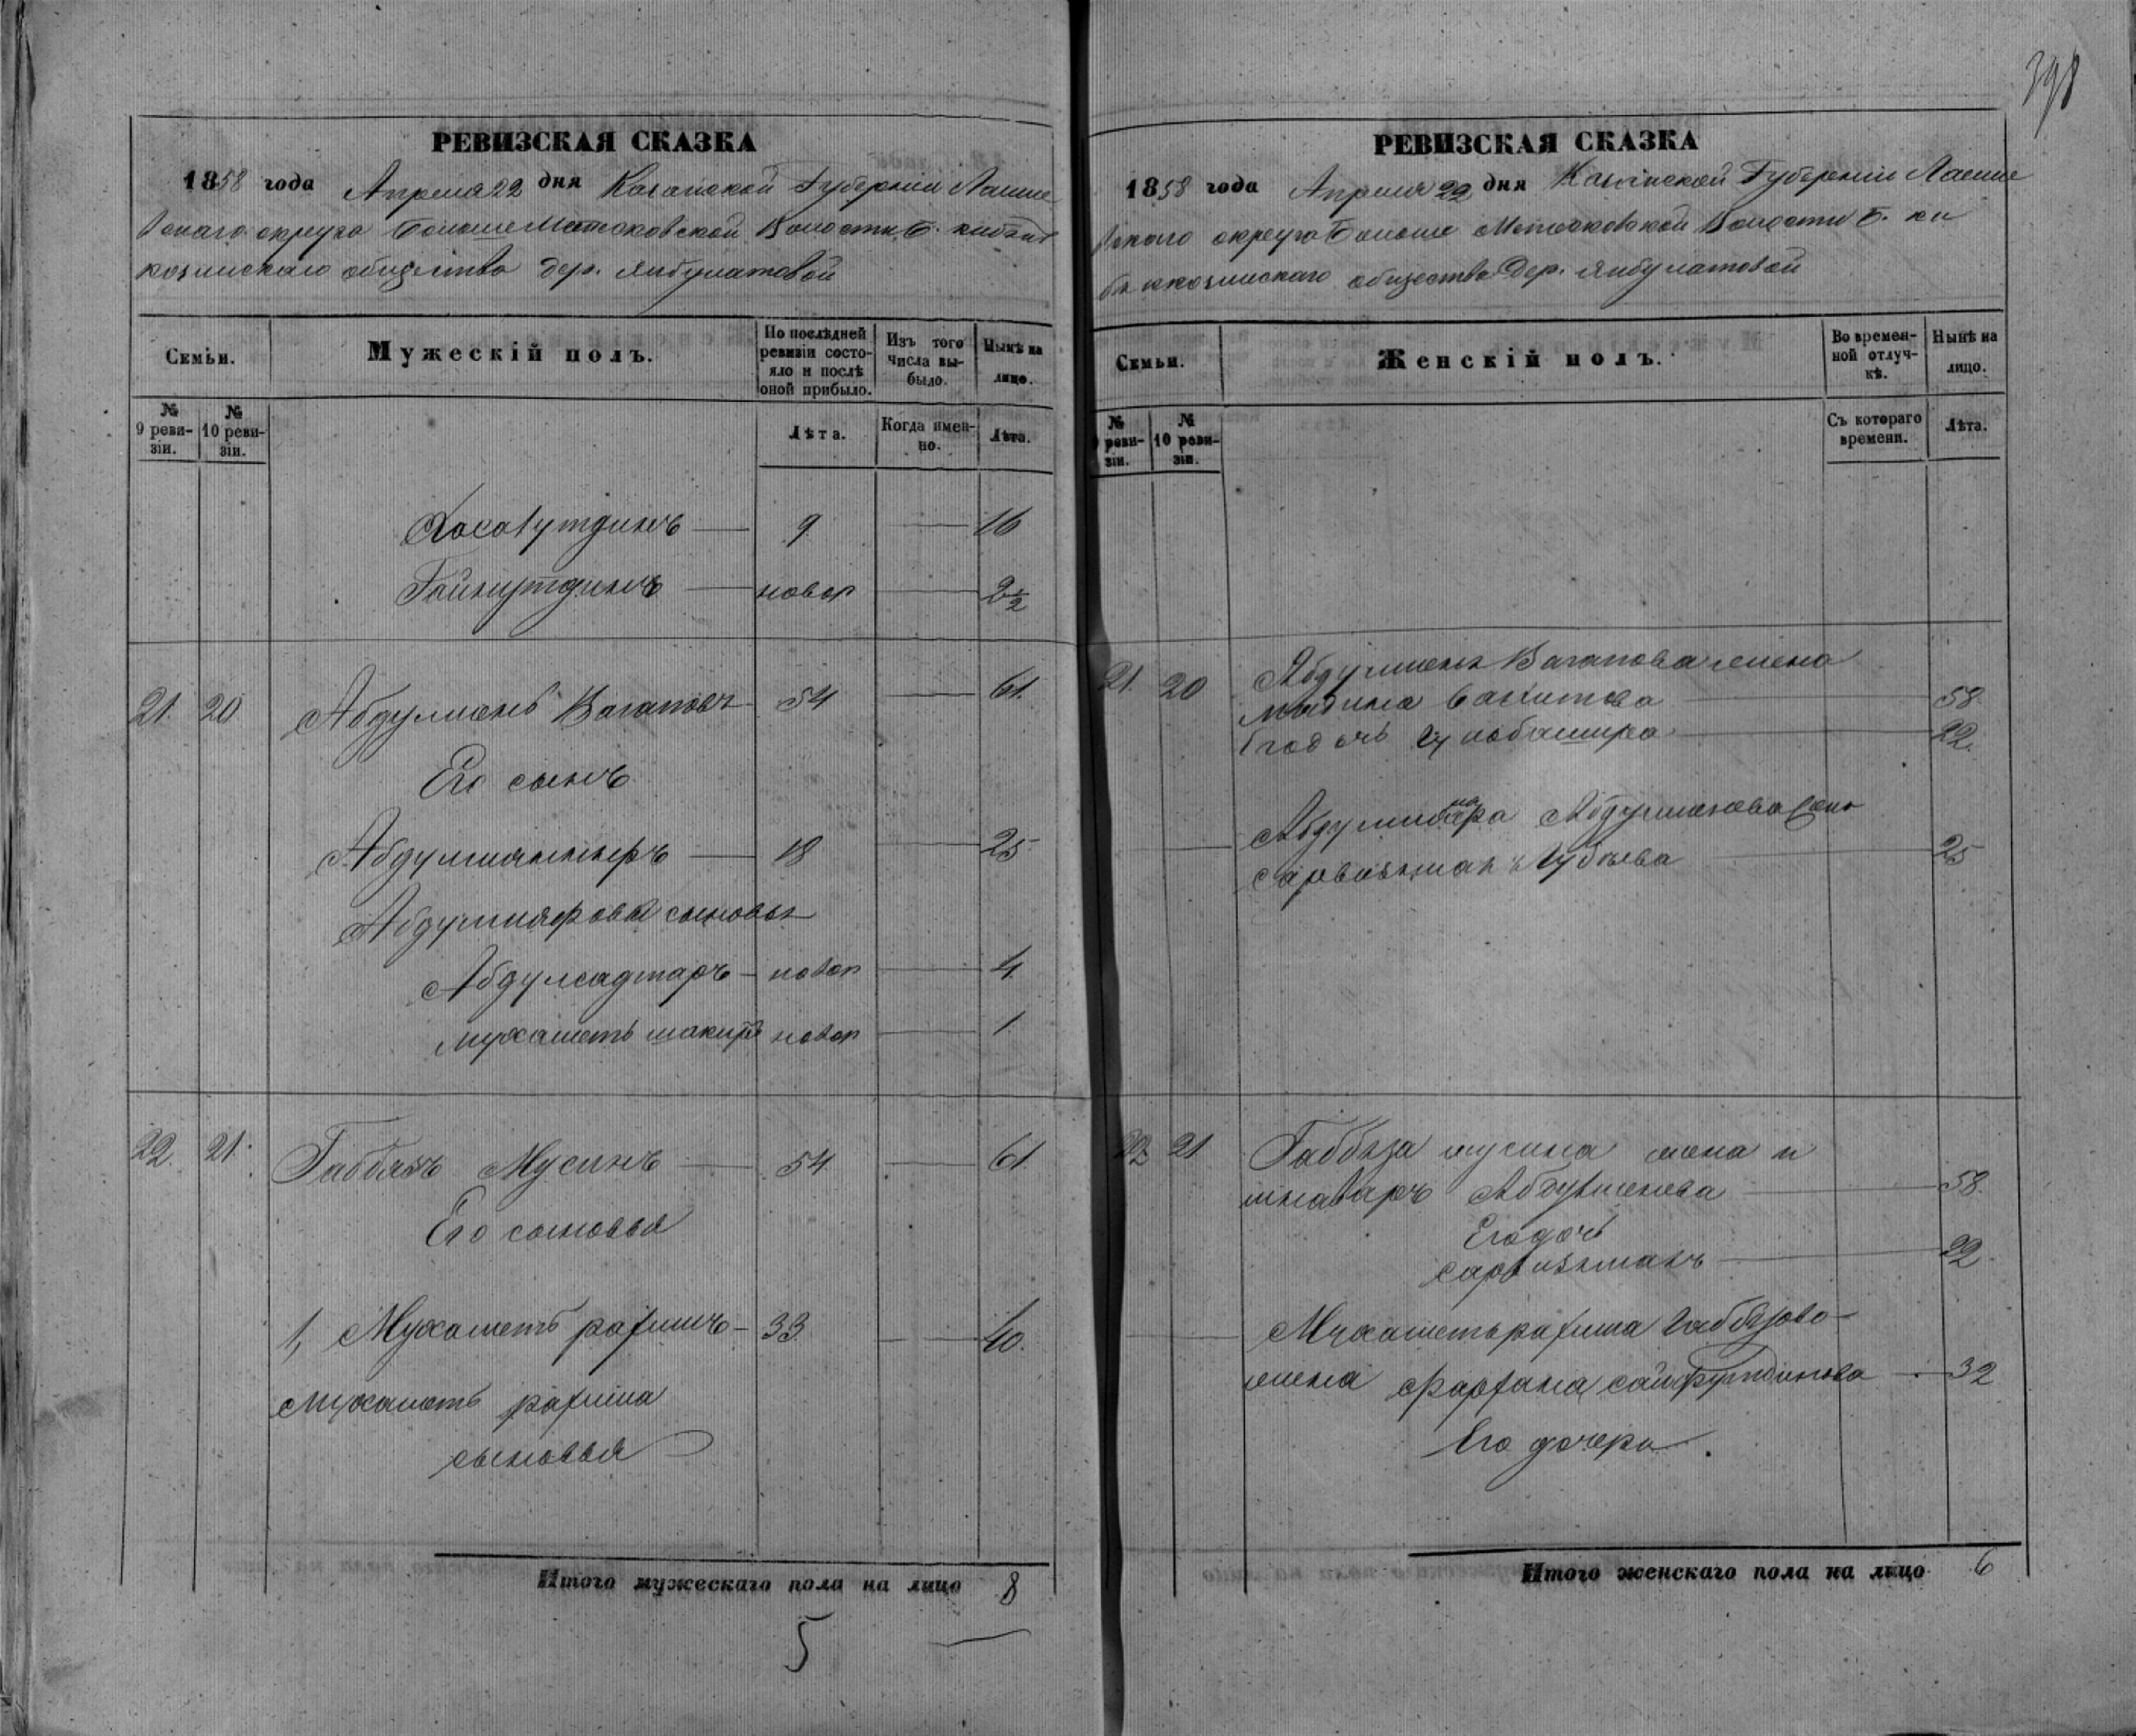 398
РЕВИЗСКАЯ СКАЗКА
1858 года Апреля 22 дня Казанской Губерніи Лаише
вскаго округа Больше Метесковской Волости Б.
козинскаго общества дер. Янбулатовой
Семьи.
Мужескій полъ.
По послѣдней ревизіи состояло и послѣ оной прибыло.
Изъ того числа выбыло.
Нынѣ на лицо.
№ 9 ревизіи.
№ 10 ревизіи.
Лѣта.
Когда именно.
Лѣта.
Хасавутдинъ 9 16
Гайнутдинъ новор 2½
21. 20 Абдулменъ Вагаповъ 54 61.
Его сынъ
18 25
сыновья
Абдулсадтаръ новор 4
Мухаметь шакиръ новор 1
22. 21. Габбязъ Мусинъ 54 61.
Его сыновья
1, Мухаметь рахимъ 33 40.
Мухаметь рахима
сыновья
Итого мужескаго пола на лицо 8
5
РЕВИЗСКАЯ СКАЗКА
1858 года Апреля 22 дня Казанской Губерніи Лаише
вскаго округа Больше Метесковской Волости Б. ки
бяккозинскаго общества Дер. Янбулатовой
Семьи.
Женскій полъ.
Во временной отлучкѣ.
Нынѣ на лицо.
№ 9 ревизіи.
№ 10 ревизіи.
Съ котораго времени.
Лѣта.
21. 20 Абдулменя Вагапова жена
58
22.
25
22 21 Габбяза мусина жена
58.
Его дочь
22
Мухаметьрахима Габбязова
жена сайфутдинова 32
Его дочери.
Итого женскаго пола на лицо 6